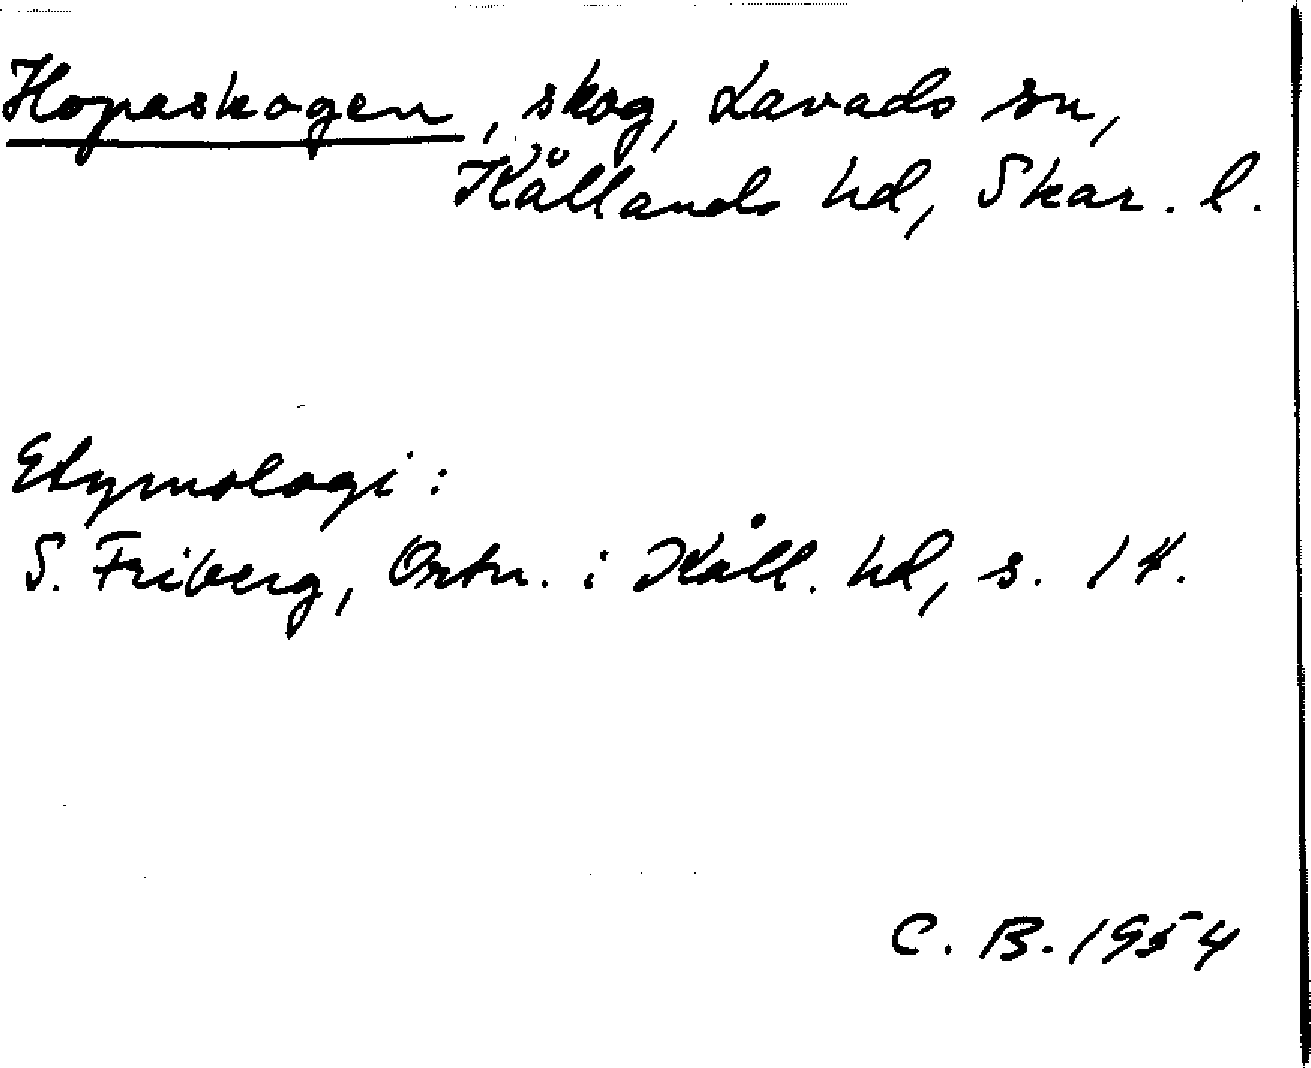 Hopaskogen, skog, Lavads sn,
Kållands hd, Skar. l.
Etymologi:
S. Friberg, Ortn. i Kåll. hd, s. 14.
C. B. 1954